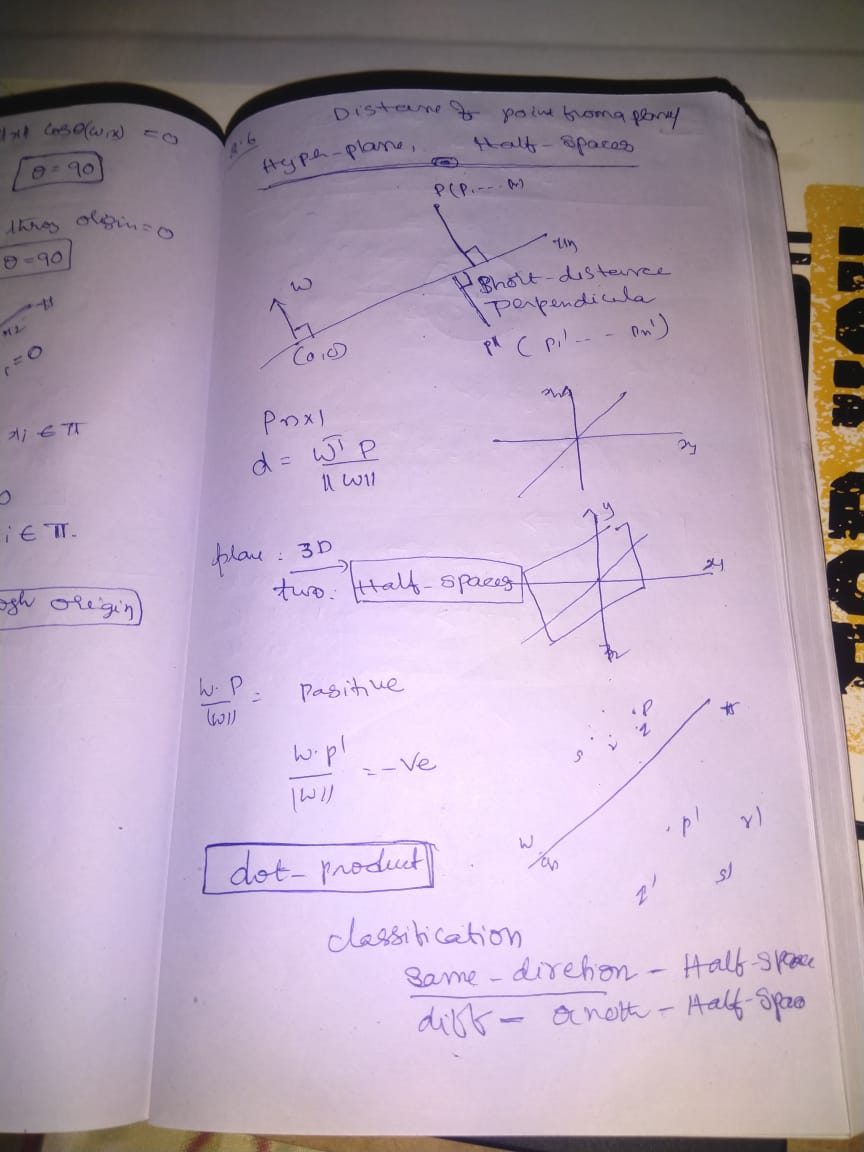 cosθ(w,x) = 0
θ = 90
throg origin = 0
θ = 90
= 0
xi ∈ π
i ∈ π.
ogh origin
Distance of point from a plane/
Hyper-plane, Half-spaces
P(P1 ---- Pn)
πn
w
Short-distance
perpendicula
(0,0)
p1' -- - Pn')
P n x 1
d = wT P
||w||
plane : 3D
two.
Half-spaces
y
w. P = Positive
||w||
w. p' = -ve
||w||
p
q
s r
π
w
p' r'
q' s'
dot-product
classification
Same-direction - Half-space
diff - anoth - Half-Spac